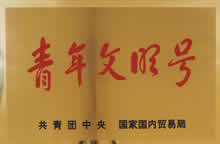 青年文明号
共青团中央 国家国内贸易局